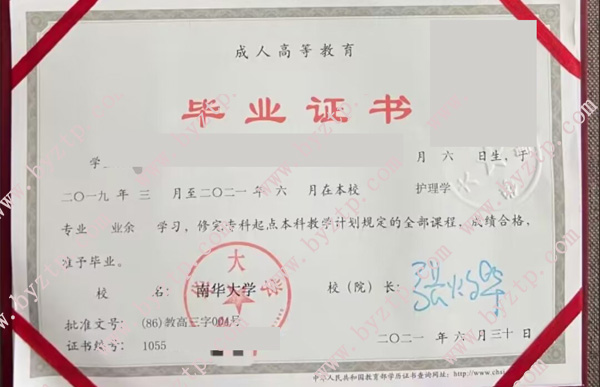 成人高等教育
毕业证书
学
月 六 日生，于
二〇一九 年 三 月至二〇二一 年 六 月在本校 护理学
专业 业余 学习，修完专科起点本科教学计划规定的全部课程，成绩合格，
准予毕业。
大 学
校 名： 南华大学 校（院）长：
批准文号： (86)教高三字004号
证书编号： 1055
二〇二一 年 六 月三十日
中华人民共和国教育部学历证书查询网址：http://www.chsi
www.byztp.com